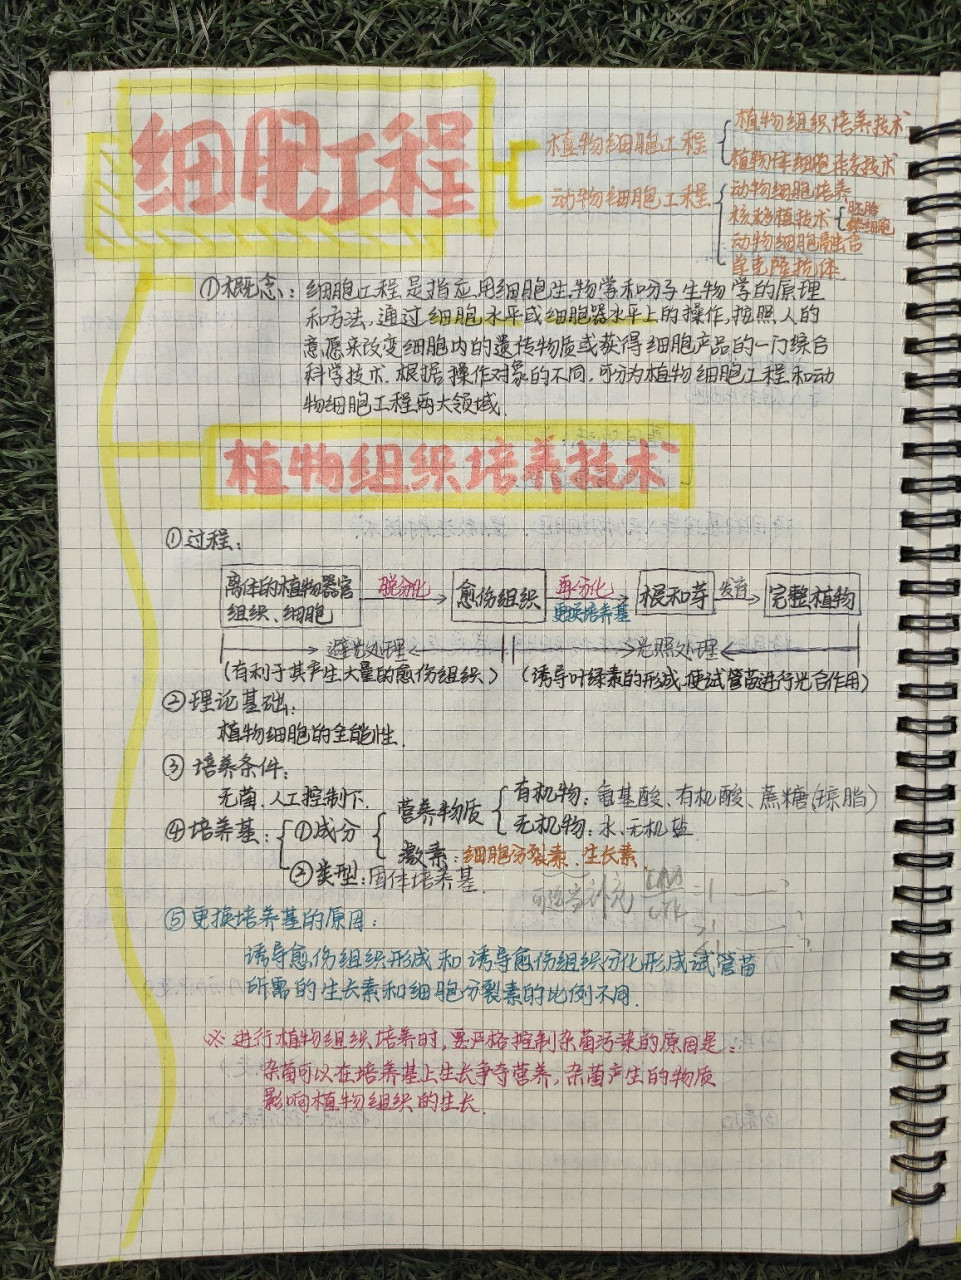 细胞工程
植物细胞工程
植物组织培养技术
植物体细胞杂交技术
动物细胞工程
动物细胞培养
核移植技术
胚胎
体细胞
动物细胞融合
单克隆抗体
①概念：细胞工程是指应用细胞生物学和分子生物学的原理
和方法，通过细胞水平或细胞器水平上的操作，按照人的
意愿来改变细胞内的遗传物质或获得细胞产品的一门综合
科学技术. 根据操作对象的不同，可分为植物细胞工程和动
物细胞工程两大领域.
植物组织培养技术
①过程：
离体的植物器官
组织、细胞
脱分化
愈伤组织
再分化
更换培养基
根和芽
发育
完整植物
避光处理
光照处理
(有利于其产生大量的愈伤组织)
(诱导叶绿素的形成，使试管苗进行光合作用)
②理论基础：
植物细胞的全能性.
③培养条件：
无菌、人工控制下.
④培养基：
①成分
营养物质
有机物：氨基酸、有机酸、蔗糖(琼脂)
无机物：水、无机盐
激素：细胞分裂素、生长素.
②类型：固体培养基.
可适当补充
⑤更换培养基的原因：
诱导愈伤组织形成和诱导愈伤组织分化形成试管苗
所需的生长素和细胞分裂素的比例不同.
※进行植物组织培养时，要严格控制杂菌污染的原因是：
杂菌可以在培养基上生长争夺营养，杂菌产生的物质
影响植物组织的生长.